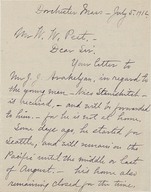 Dorchester Mass - July 5 - 1912
Mr. W. W. Peet. -
Dear Sir.
Your letter to
Mr J. J. Arakelyan, in regard to
the young man -
is received, - and will be forwarded
to him. - for he is not at home.
Some days ago he started for
Seattle, and will remain on the
Pacific until the middle or last
of August. - his home also
remaining closed for the time.